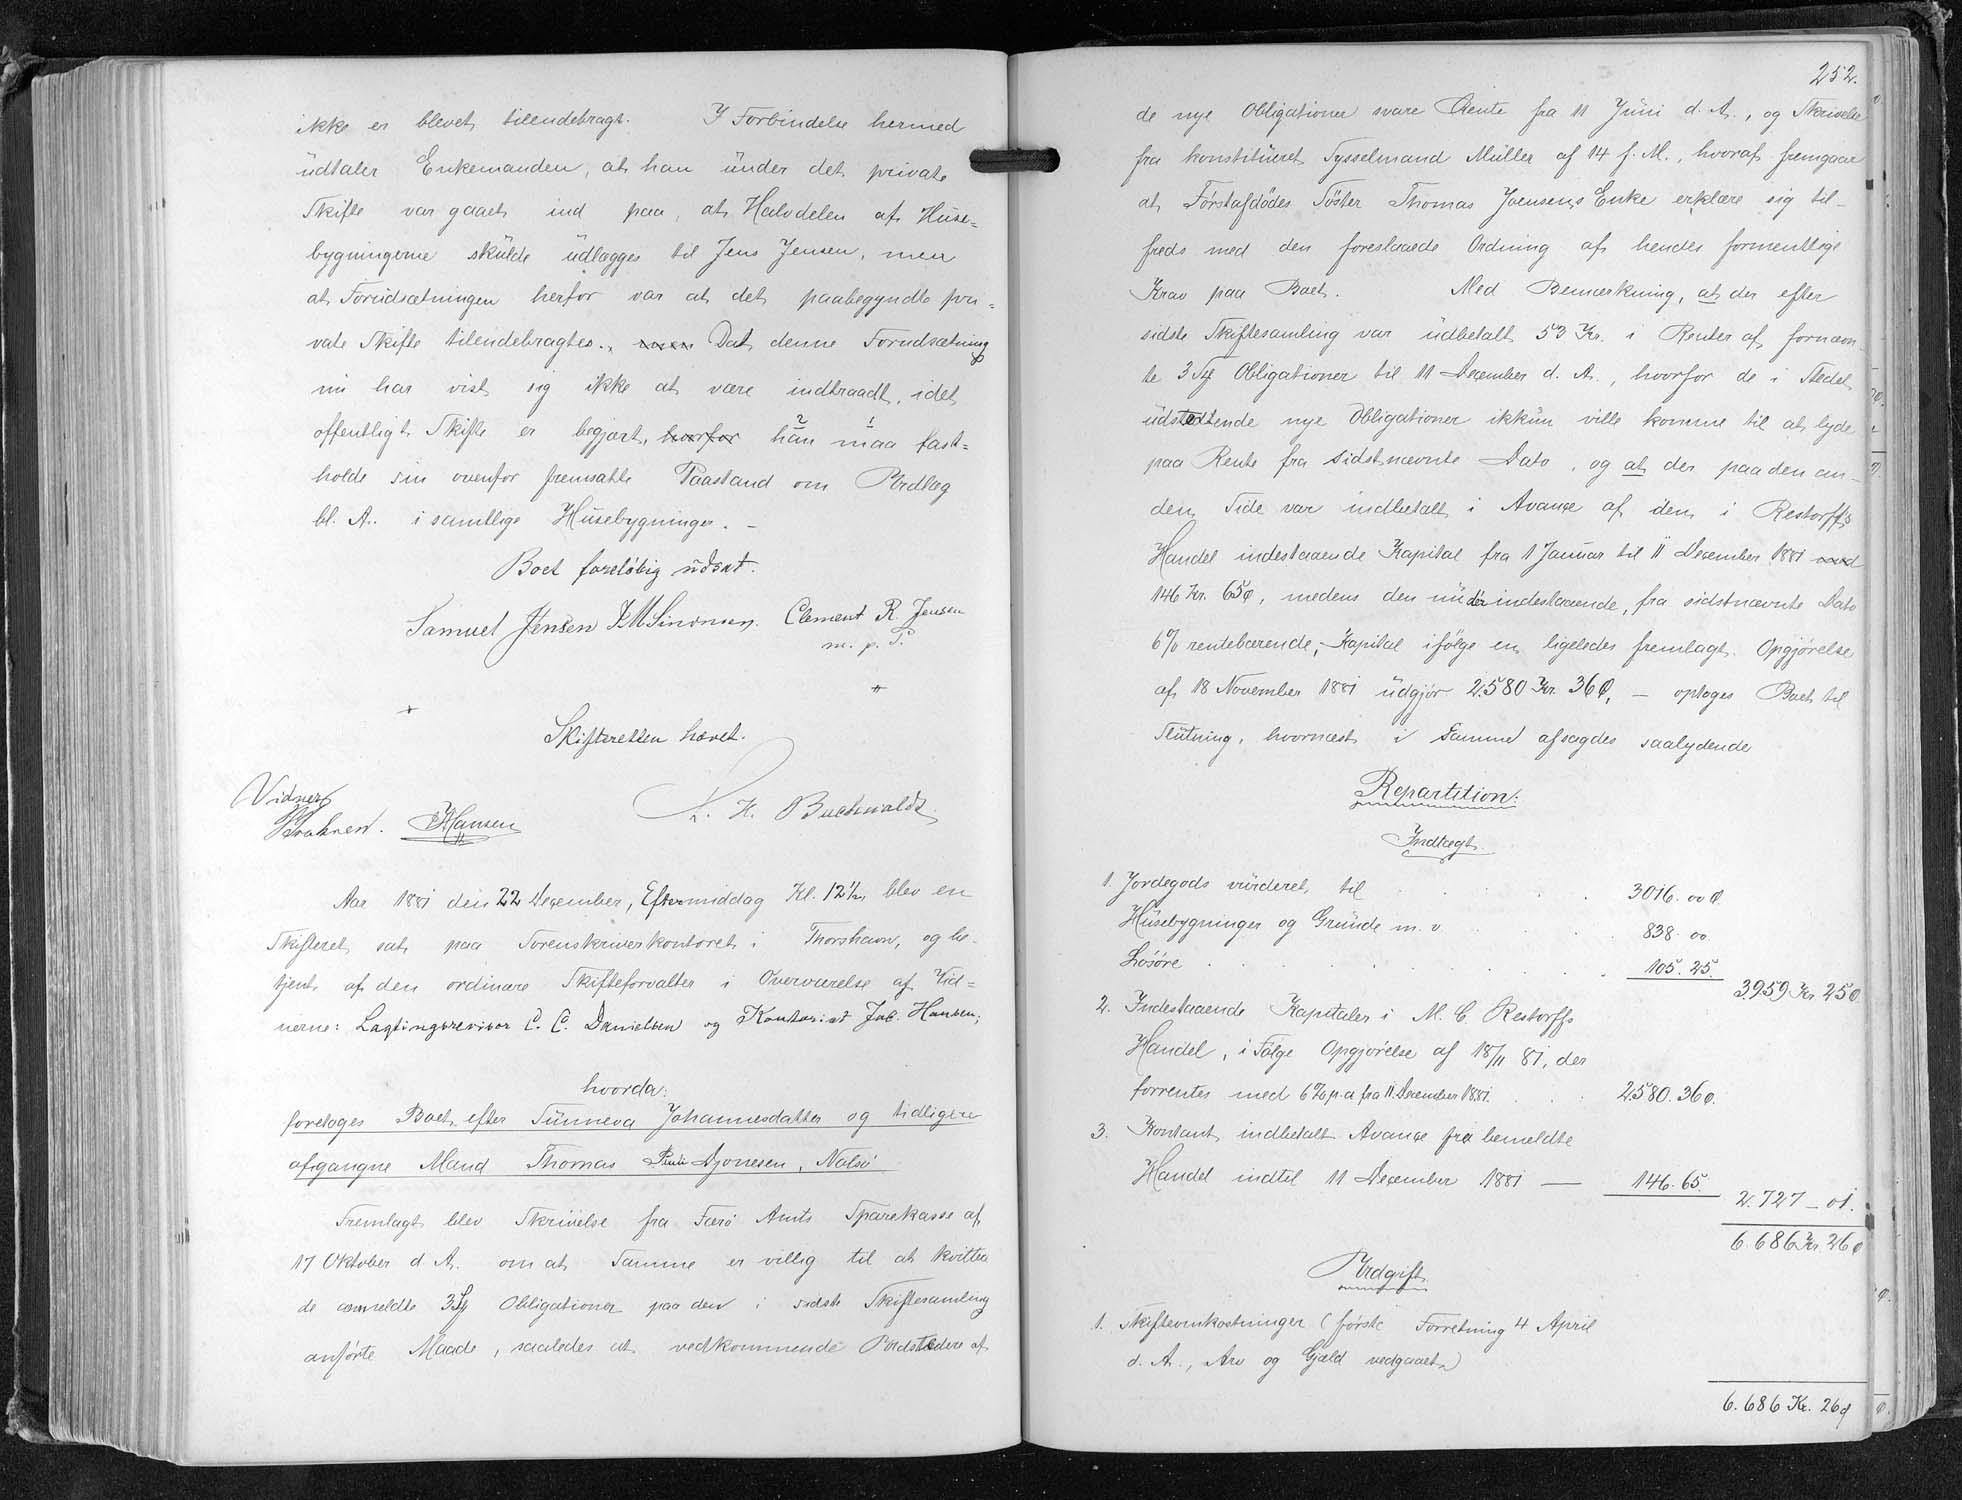 ikke er blevet tilendebragt. I Forbindelse hermed
üdtaler Enkemanden, at han ünder det private
Skifte var gaaet ind paa, at Halvdelen af Huse=
bygningerne skülde üdlægges til Jens Jensen, men
at Forudsætningen herfor var at det paabegyndte pri=
vate Skifte tilendebragtes., Dat denne Forudsætning
nü har vist sig ikke at være indtraadt, idet
offentligt Skifte er begjært, hvorfor han maa fast=
holde sin ovenfor fremsatte Paastand om Udlæg
bl. A. i samtlige Hüsebygninger. –
Boet foreløbig üdsat.
Samuel Jensen Clement R. Jensen
m. p. P.
Skifteretten hævet.
Vidner
Hansen
Buchwaldt
Aar 1881 den 22 December, Eftermiddag Kl. 12½, blev en
Skifteret sat paa Sorenskriverkontoret i Thorshavn, og be-
tjent af den ordinære Skifteforvalter i Overværelse af Vid=
nerne: Lagtingsrevisor C. C. Danielsen og Kontorist Jac. Hansen;
hvorda:
foretoges Boet efter Sünneva Johannesdatter og tidligere
afgangne Mand Thomas Djonesen, Nolsø
Fremlagt blev Skrivelse fra Færø Amts Sparekasse af
17 Oktober d. A. om at Samme er villig til at kvittere
de anmeldte 3 Obligationer paa den i sidste Skiftesamling
anførte Maade, saaledes at vedkommende Udstedere af
252.
de nye Obligationer svare Rente fra 11 Jüni d. A., og Skrivelse
fra konstitüeret Sysselmand Müller af 14 f. M., hvoraf fremgaar
at Førstafdødes Søster Thomas Joensens Enke erklære sig til-
freds med den foreslaaede Ordning af hendes formentlige
Krav paa Boet. Med Bemærkning, at der efter
sidste Skiftesamling var üdbetalt 53 Kr. i Renter af fornævn-
te 3 Obligationer til 11 December d. A., hvorfor de i Stedet
üdstedtende nye Obligationer ikkün ville komme til at lyde
paa Rente fra sidstnævnte Dato, og at der paa den an-
den Side var indbetalt i Avance af den i Restorffs
Handel indestaaende Kapital fra 1 Januar til 11 December 1881
146 Kr. 65ø, medens den nü der indestaaende, fra sidstnævnte Dato
6% rentebærende, Kapital ifølge en ligeledes fremlagt Opgjørelse
af 18 November 1881 üdgjør 2.580 Kr. 36 Ø, – optoges Boet til
Slütning, hvornæst i Samme afsagdes saalydende
Repartition:
Indtægt.
1. Jordegods vürderet til . . . . 3016. 00 Ø.
Hüsebygninger og Gründe m. v. . . . 838. 00.
Løsøre . . . . . . 105. 25.
3959 Kr. 25 Ø
2. Indestaaende Kapitaler i M. C. Restorffs
Handel, i Følge Opgjørelse af 18/11 81, der
forrentes med 6% p.a fra 11. December 1881. . . . 2580. 36 Ø.
3. Kontant indbetalt Avance fra bemeldte
Handel indtil 11 December 1881 — 146. 65.
2.727 – 01.
6.686 Kr. 26 Ø
Udgift.
1. Skifteomkostninger (første Forretning 4 April
d. A., Arv og Gjæld vedgaaet)
6.686 Kr. 26 Ø